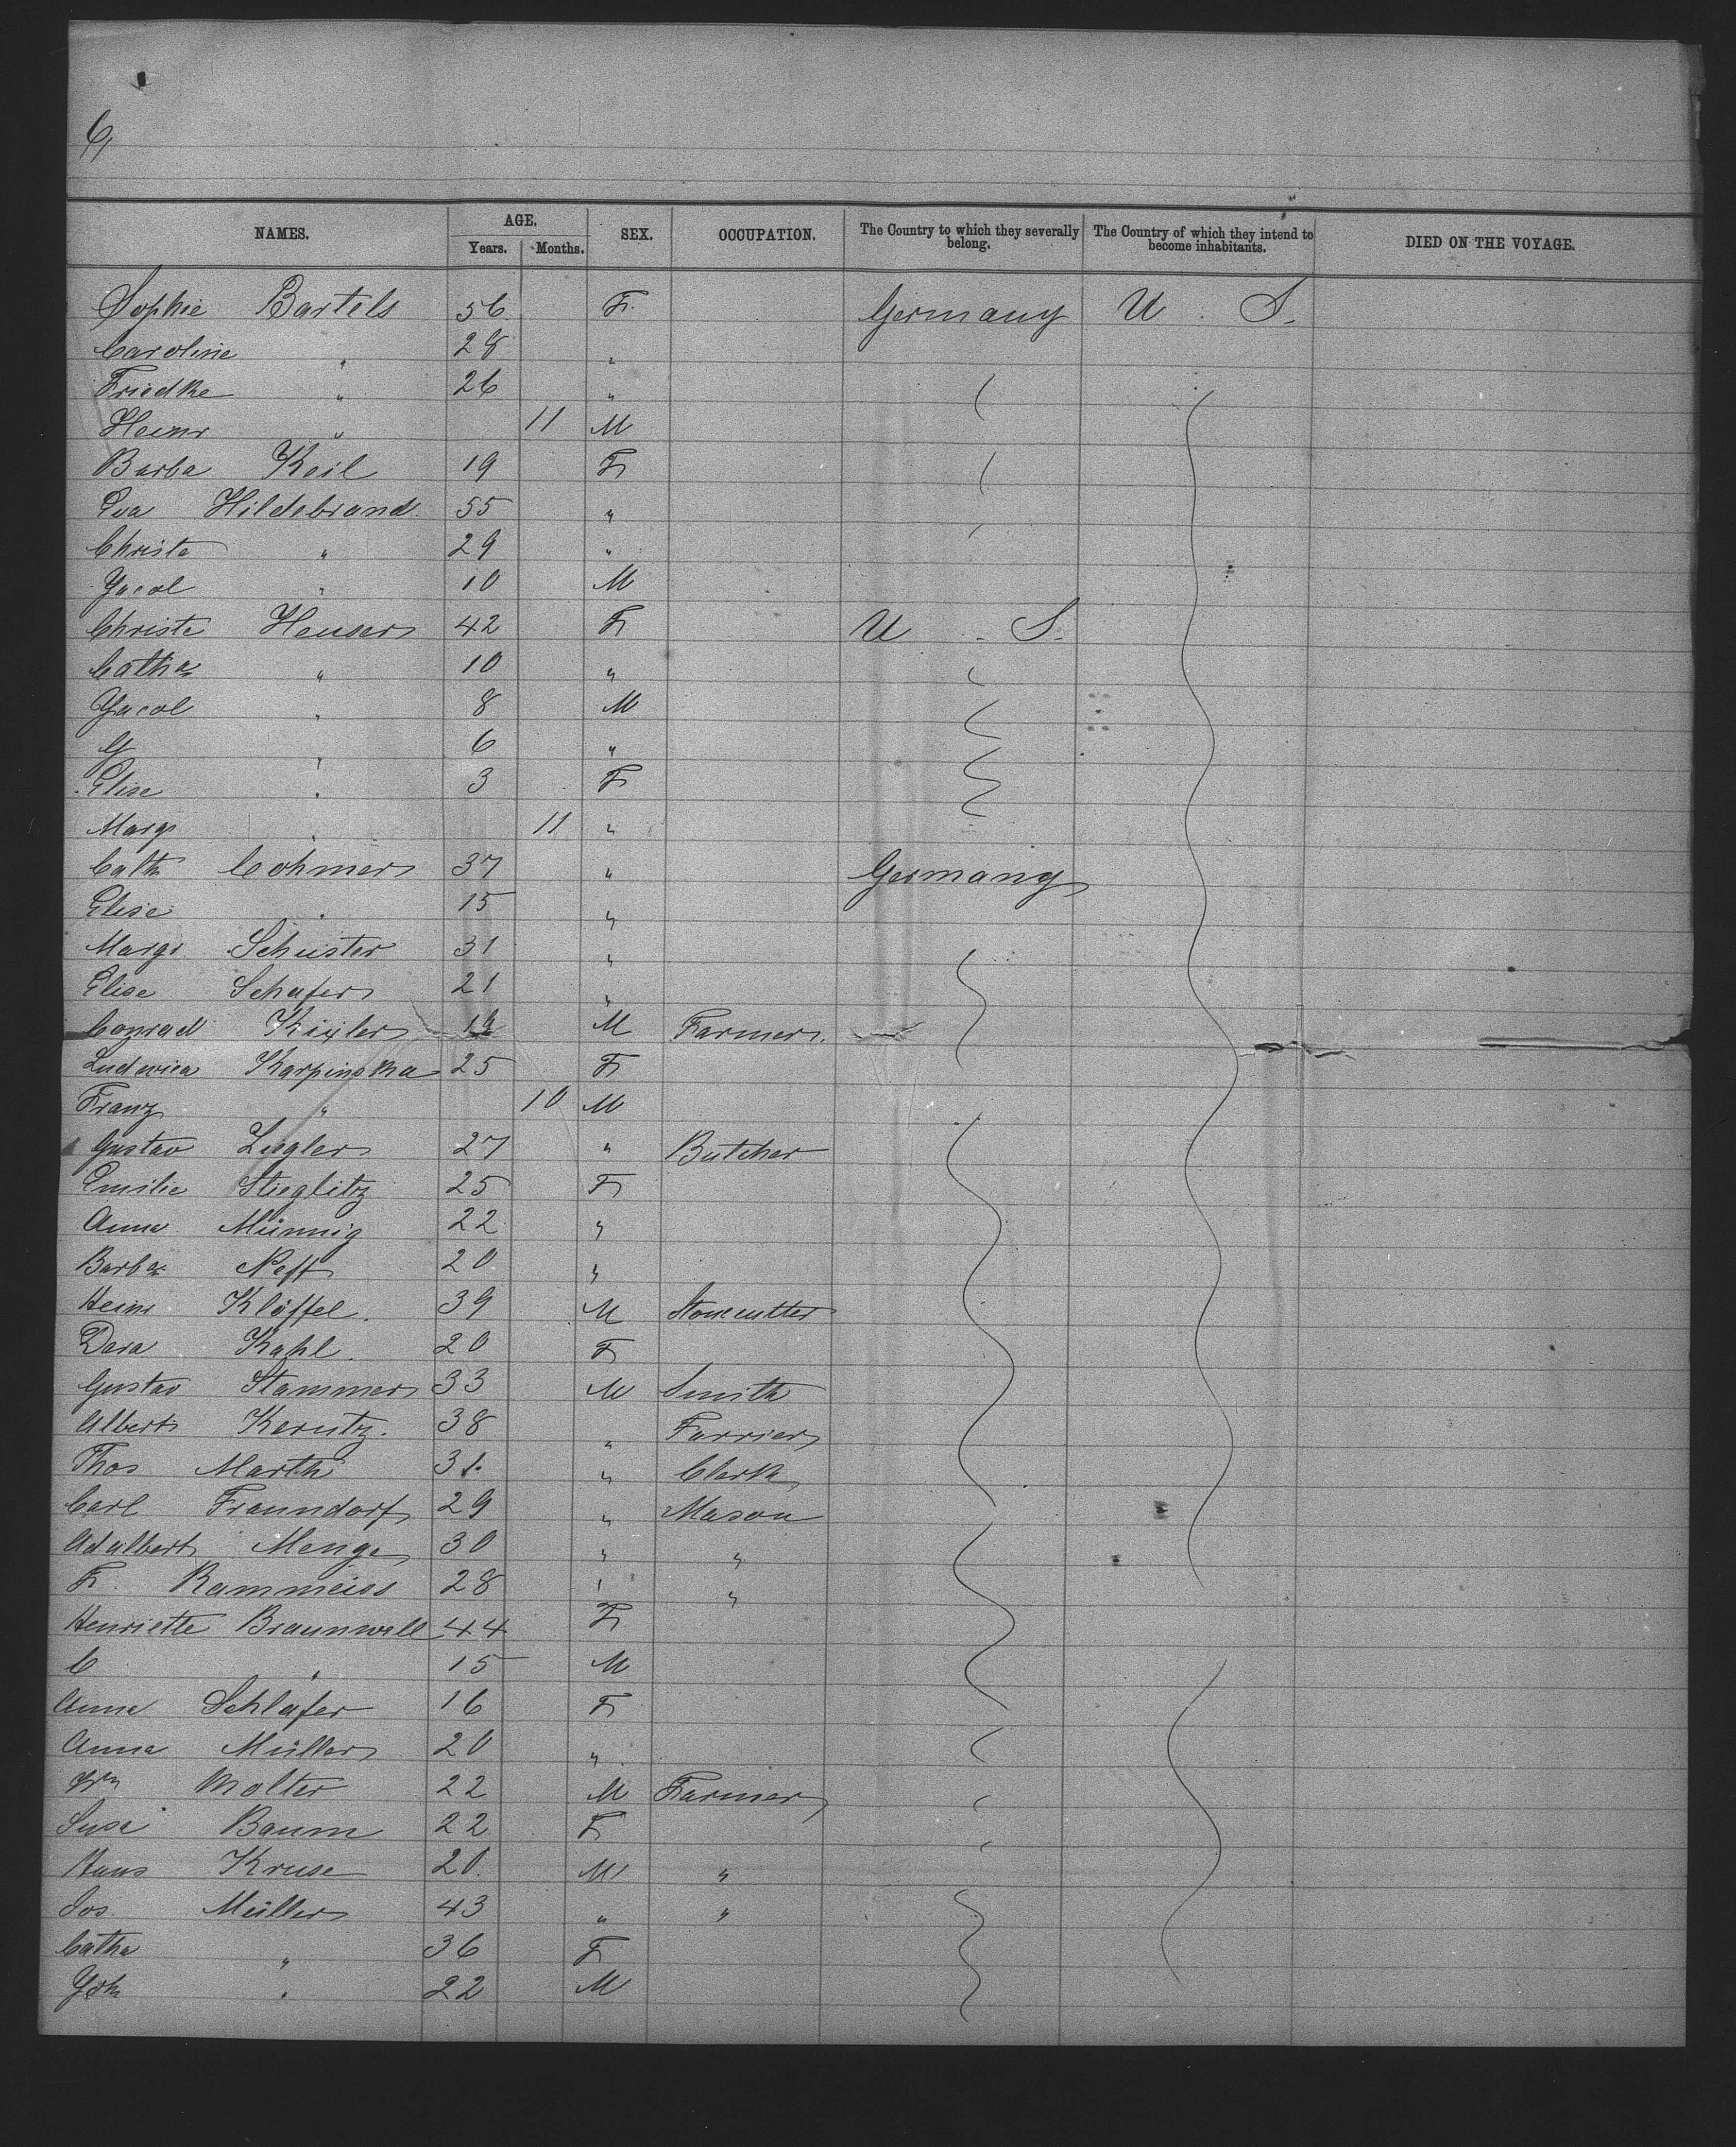 6
NAMES. AGE. Years. Months. SEX. OCCUPATION. The Country to which they severally belong. The Country of which they intend to become inhabitants. DIED ON THE VOYAGE.
Sophie Bartels 56 F. Germany U. S.
Caroline " 28 "
Friedke " 26 "
Heinr " 11 M
Barba Keil 19 F
Eva Hildebrand 55 "
Christe " 29 "
Jacob " 10 M
Christe Heuser 42 F U. S.
Catha " 10 "
Jacob " 8 M
G " 6 "
Elise " 3 F
Margr " 11 "
Cath Cohmer 37 " Germany
Elise " 15 "
Margr Schuster 31 "
Elise Schafer 21 "
Conrad M Farmer.
Ludwica Karpinska 25 F
Franz " 10 M
Gustav Ziegler 27 " Butcher
Emilie Stieglitz 25 F
Anna Münnig 22 "
Barba Neff 20 "
Heinr Klöffel. 39 M Stonecutter
Dora Kahl. 20 F
Gustav Stammer 33 M Smith
Albert Kerutz. 38 " Farrier
Thos Marth 31. " Clerk
Carl Fraundorf 29 " Mason
Adalbert Menge 30 " "
F. Rammeiss 28 " "
Henriette Braunwell 44 F
C " 15 M
Anna Schlafer 16 F
Anna Müller 20 "
Wm Molter 22 M Farmer
Susa Baum 22 F
Hans Kruse 20. M "
Jos. Müller 43 " "
Catha " 36 F
Joh " 22 M